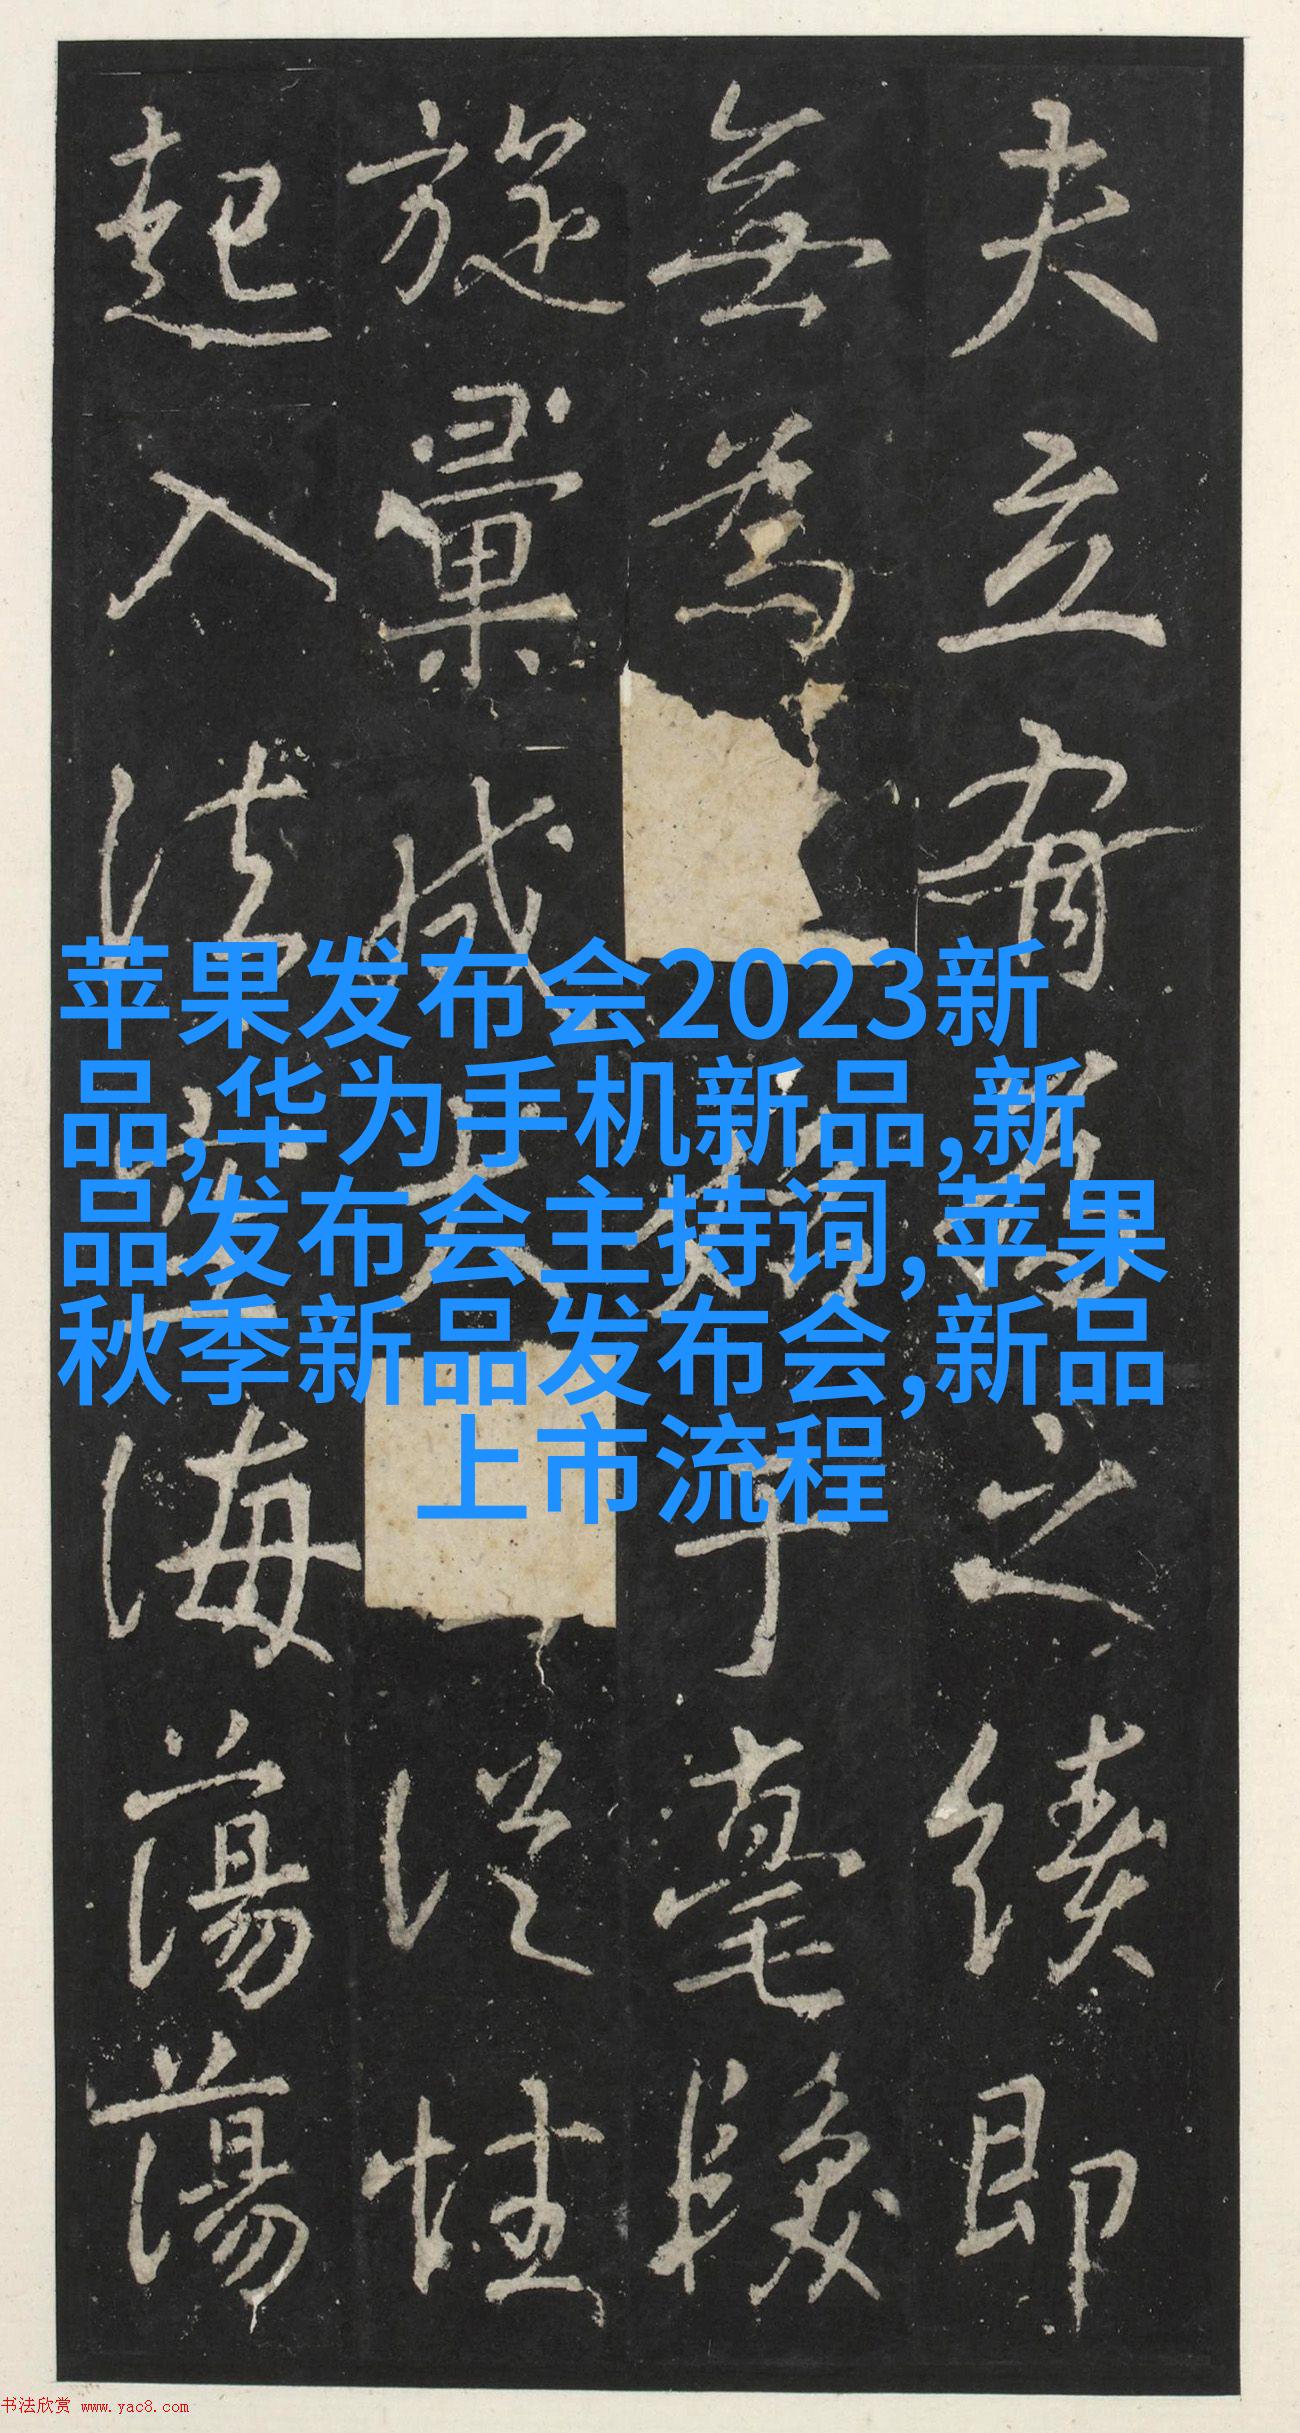 夫立之續即
無為于毫
旋彙從性
起入法海蕩蕩
苹果发布会2023新
品,华为手机新品,新
品发布会主持词,苹果
秋季新品发布会,新品
上市流程
书法欣赏 www.yac8.com